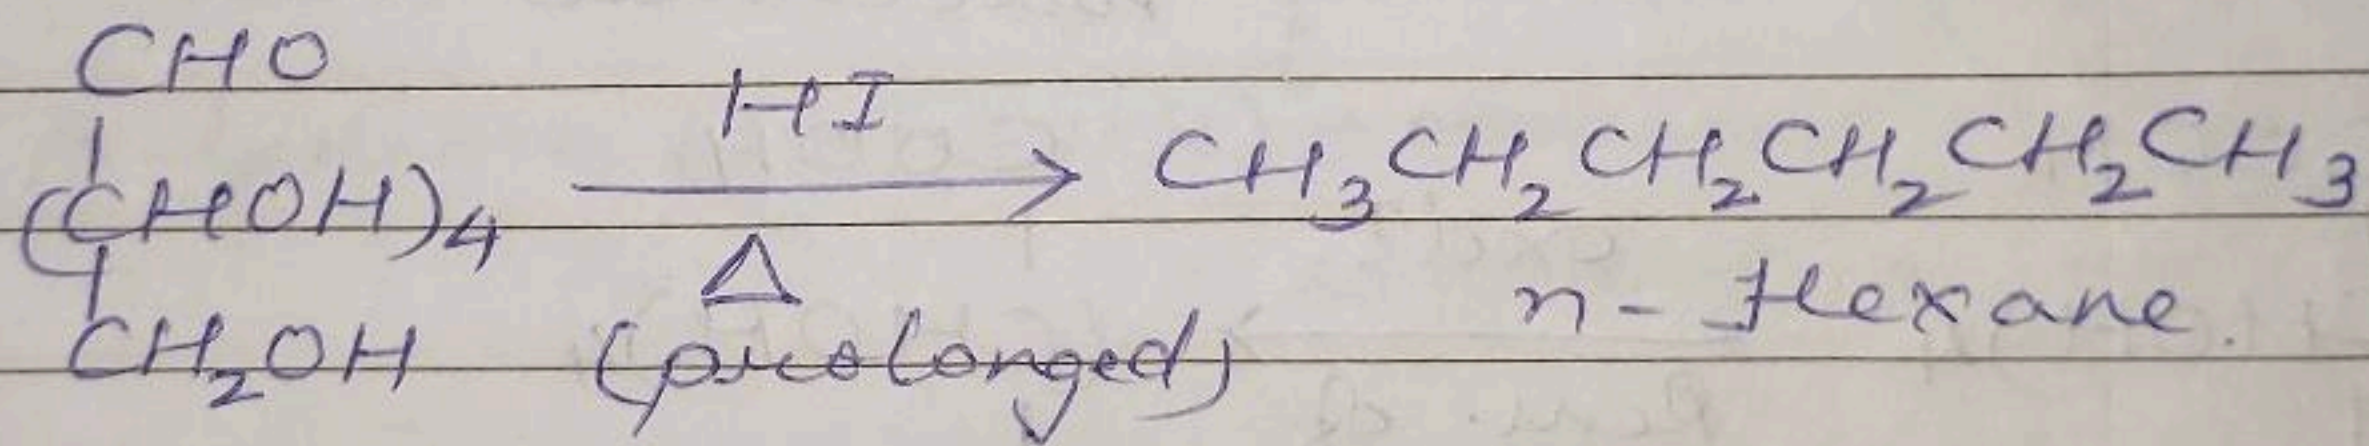 CHO
|
(CHOH)₄ HI → CH₃CH₂CH₂CH₂CH₂CH₃
|
CH₂OH Δ (prolonged) n-Hexane.